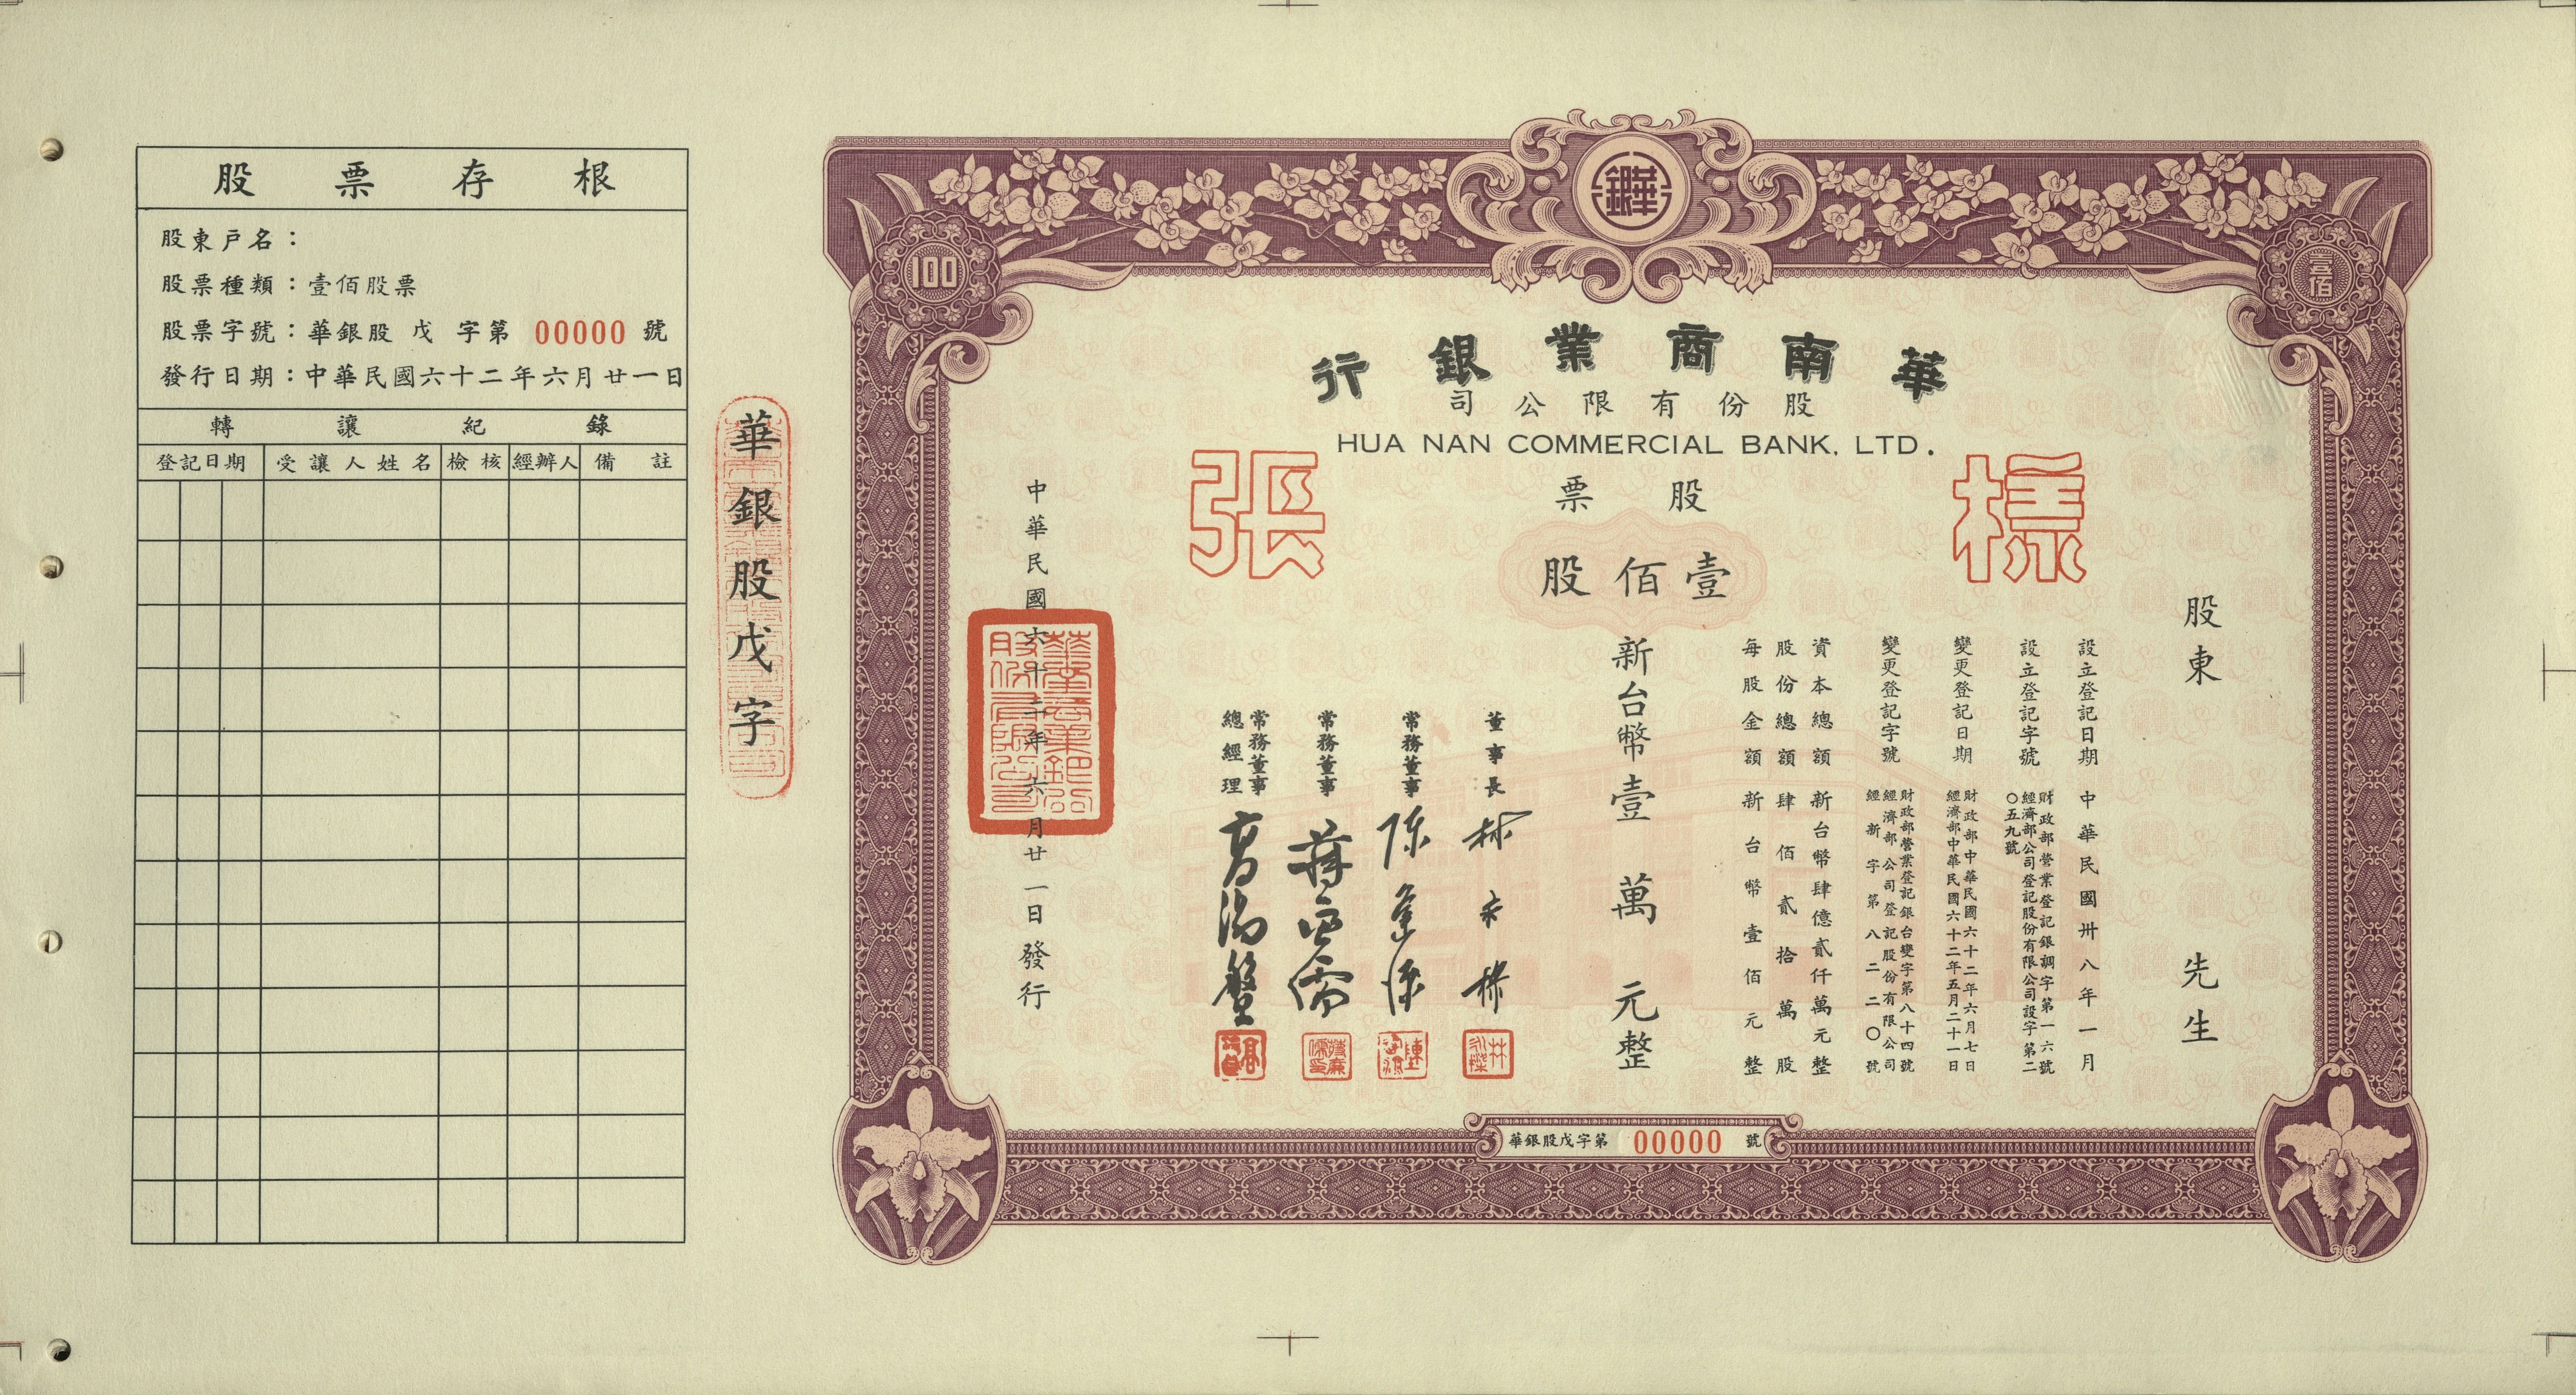 股票存根
股東戶名：
股票種類：壹佰股票
股票字號：華銀股 戊 字第 00000 號
發行日期：中華民國六十二年六月廿一日
轉讓紀錄
登記日期 受讓人姓名 檢核 經辦人 備註
華銀股戊字
華銀
100
壹佰
華南商業銀行
股份有限公司
HUA NAN COMMERCIAL BANK, LTD.
樣張
股票
壹佰股
股東 先生
設立登記日期 中華民國卅八年一月
設立登記字號 財政部營業登記銀調字第一六號
經濟部公司登記股份有限公司設字第二
〇五九號
變更登記日期 財政部中華民國六十二年六月七日
經濟部中華民國六十二年五月二十一日
變更登記字號 財政部營業登記銀台變字第八十四號
經濟部公司登記股份有限公司
經新字第八二二〇號
資本總額新台幣肆億貳仟萬元整
股份總額肆佰貳拾萬股
每股金額新台幣壹佰元整
新台幣壹萬元整
董事長 林永樑
常務董事
常務董事 蔣廉儒
常務董事
總經理 高湯盤
中華民國六十二年六月廿一日發行
華銀股戊字第 00000 號